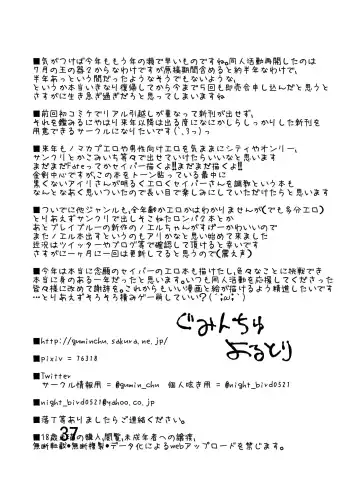 ■気がつけば今年ももう年の瀬で早いものですね。同人活動再開したのは
7月の王の器2からなわけですが原稿期間含めると約半年なわけで、
半年あっという間だったようなそうでもないような、
というか本当いきなり復帰してから今まで5回も即売会申し込んだと思うと
さすがに生き急ぎ過ぎだろと思ってしまいますね
■前回初コミケでリアル引越しが重なって新刊が出せず、
それを鑑みるにやはり来年以降は出る度になにかしらしっかりした新刊を
用意できるサークルになりたいです(`､ｩっ)っ
■来年もノマカプエロや男性向けエロを気ままにシティやオンリー、
サンクリとかこみいち等々で出せていけたらいいなと思います
まだまだFateってかセイバー描くよ!!まだまだ描くよ!!
金剣中心ですが、この本をトーン貼っている最中に
黒くないアイリさんが明るくエロくセイバーさんを調教という本も
なんとなあく思いついたので長い目で楽しみにしていただけたらと思います
■ついでに他ジャンルも、全年齢かエロかはわかりませんが(でも多分エロ)
とりあえずサンクリで出しそこねたロンパ2本とか
あとブレイブルーの新作のノエルちゃんがすげーかわいいので
またノエル本出すというのもアリかなと思い始めて来ました
近況はツイッターやブログ等で確認して頂けると幸いです
さすがに一ヶ月に一回は更新してると思うので(震え声)
■今年は本当に念願のセイバーのエロ本も描けたし、色々なことに挑戦でき
本当に身のある一年だったと思います。いつも同人活動を応援してくださった
皆様に改めて謝辞を。これからもいい漫画と絵が描けるよう精進したいです
…とりあえずそろそろ積みゲー崩していい?(´;ω;`)
ぐみんちゅ
よるとり
■http://guminchu.sakura.ne.jp/
■pixiv = 76318
■Twitter
サークル情報用 = @gumin_chu 個人呟き用 = @night_bird0521
■night_bird0521@yahoo.co.jp
■落丁等ありましたらご連絡ください。
37
無断転載・無断複製・データ化によるwebアップロードを禁じます。